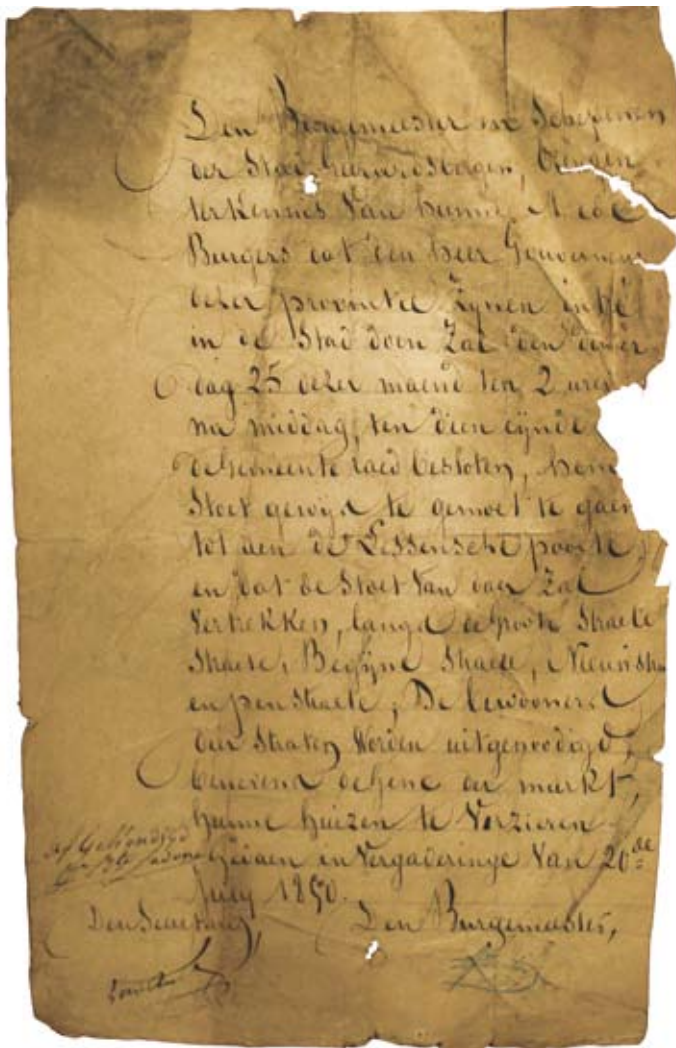 Den Burgemeester en Schepenen
der Stad Geerardsbergen, brengen
ter kennis van hunne Mede
Burgers dat den heer Gouverneur
dezer provintie zynen
in de Stad doen zal den
dag 25 dezer maend ten 2 uren
na middag, ten dien eynde
de Gemeente raed besloten, hem
Stoet gewyd te gemoet te gaen
tot aen de Lessensche poorte,
en dat de Stoet van daer zal
Vertrekken, langs de Groote Straete
Straete, Begyne Straete, Nieuwstra
en pen Straete; De bewooners
dier Straten Worden uitgenoodigd,
benevens degene der markt,
hunne huizen te Verzieren
Gedaen in Vergaderinge Van 20de
July 1850.
Den Secretaris, Den Burgemeester,